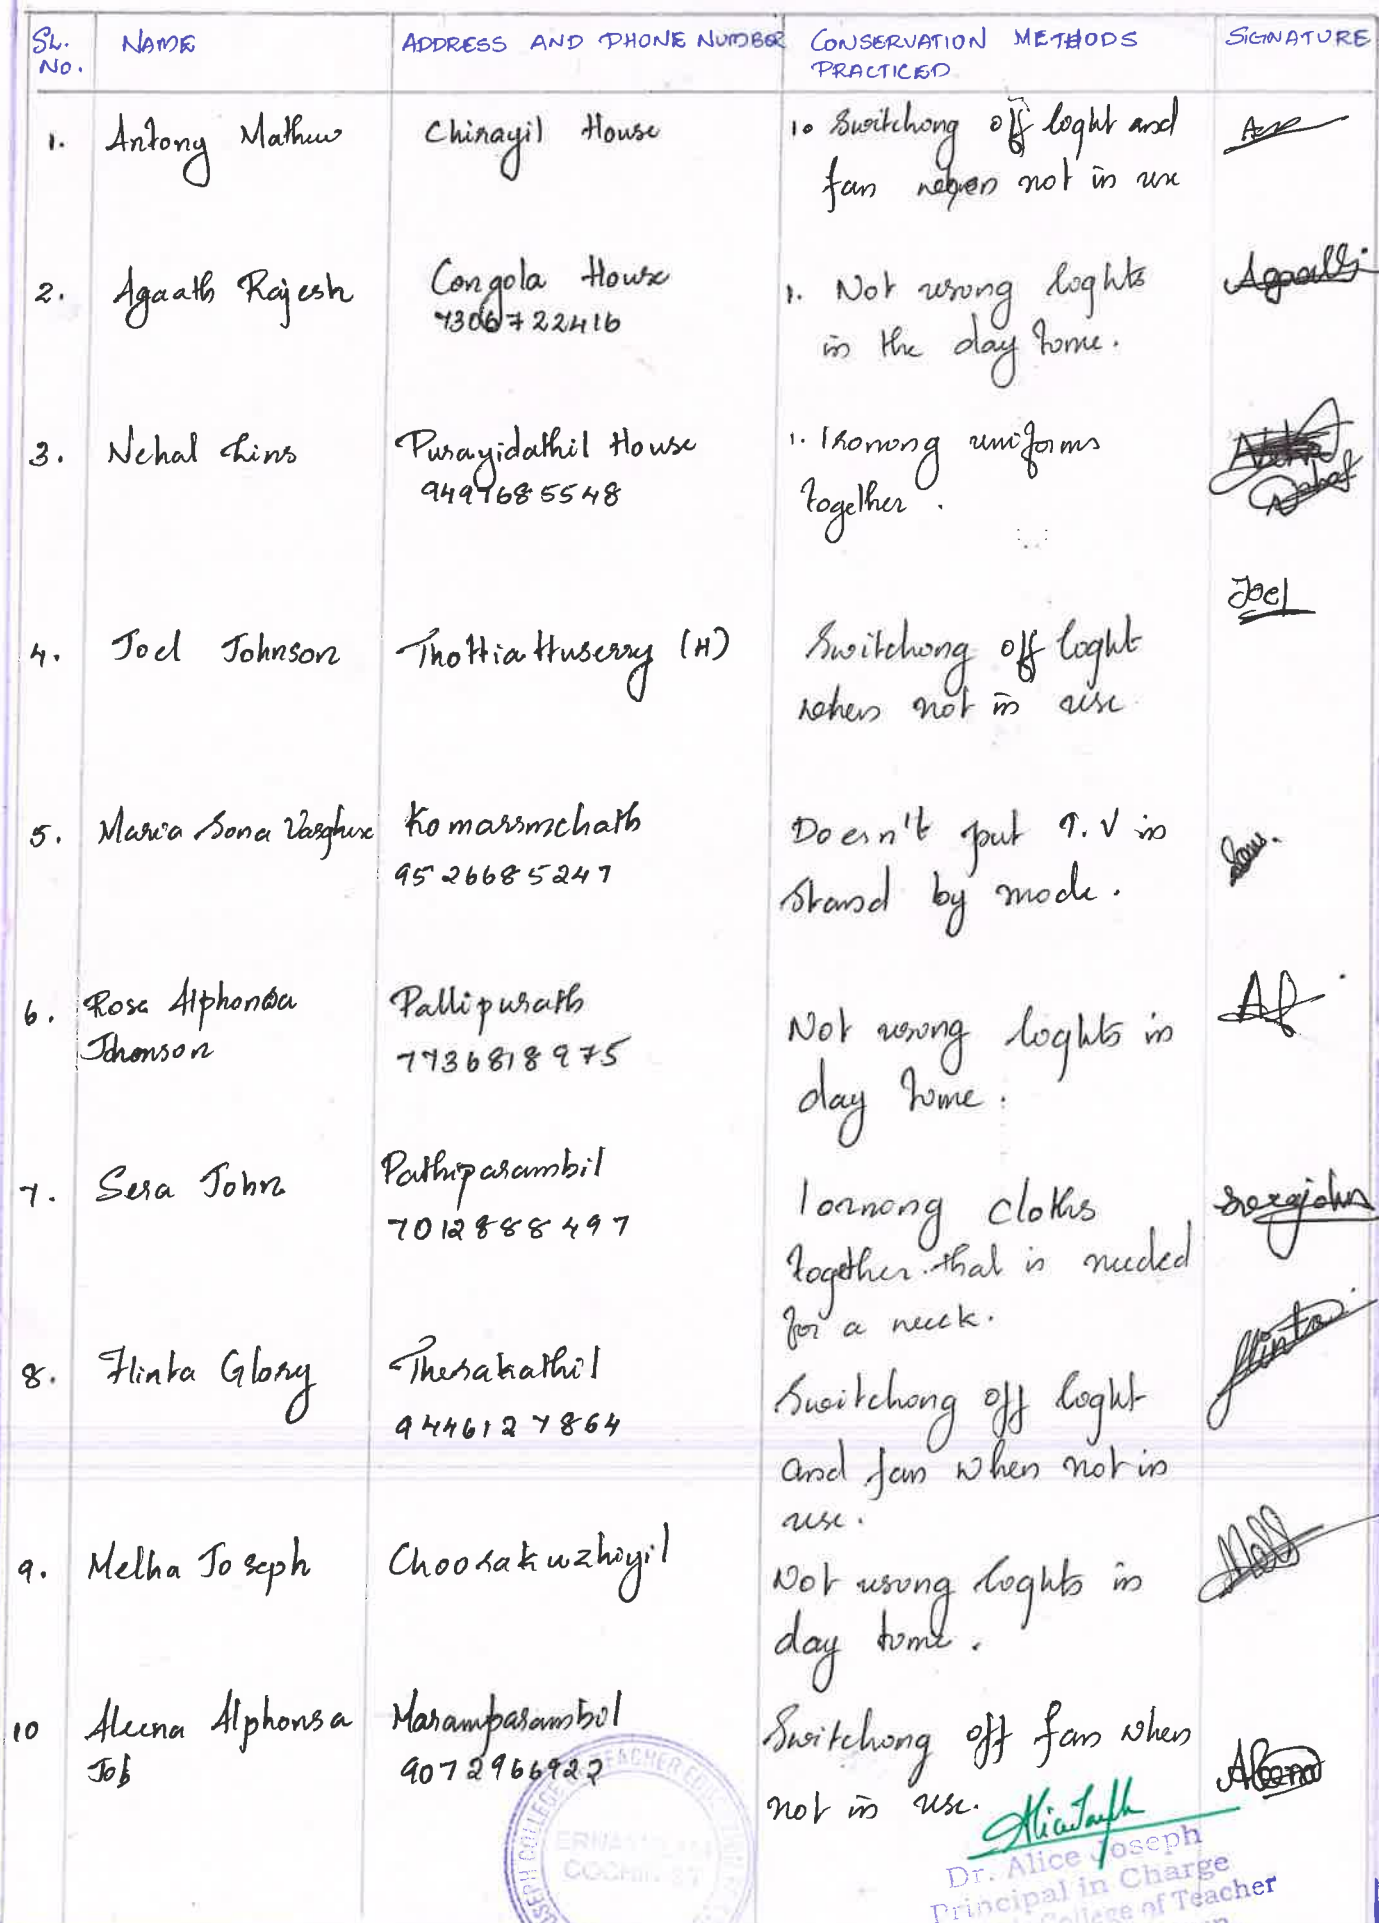 SL. NO.
NAME
ADDRESS AND PHONE NUMBER
CONSERVATION METHODS PRACTICED
SIGNATURE
1.
Antony Mathew
Chirayil House
1. Switching off light and
fan when not in use
2.
Agaath Rajesh
Congola House
7306722416
Agaath
1. Not using lights
in the day time.
3.
Nehal Lins
Purayidathil House
9497685548
1. Ironing uniforms
together.
Nehal
4.
Joel Johnson
Thottiattuserry (H)
Switching off light
when not in use
Joel
5.
Maria Sona Varghese
9526685247
Doesn't put T.V in
stand by mode.
6.
Rose Alphonsa
Jhonson
Pallipurath
7736818975
Not using lights in
day time.
7.
Sera John
Pathiparambil
7012888497
Iornong cloths
together that is needed
for a week.
Serajohn
8.
Flinta Glory
Therakathil
9446127864
Switching off light
and fan when not in
use.
flinta
9.
Melha Joseph
Choorakuzhiyil
Not using lights in
day time.
10
Aleena Alphonsa
Job
Maramparambil
9072966922
Switching off fan when
not in use.
Aleena
Dr. Alice Joseph
Principal in Charge
College of Teacher
ERNAKULAM
COCHIN